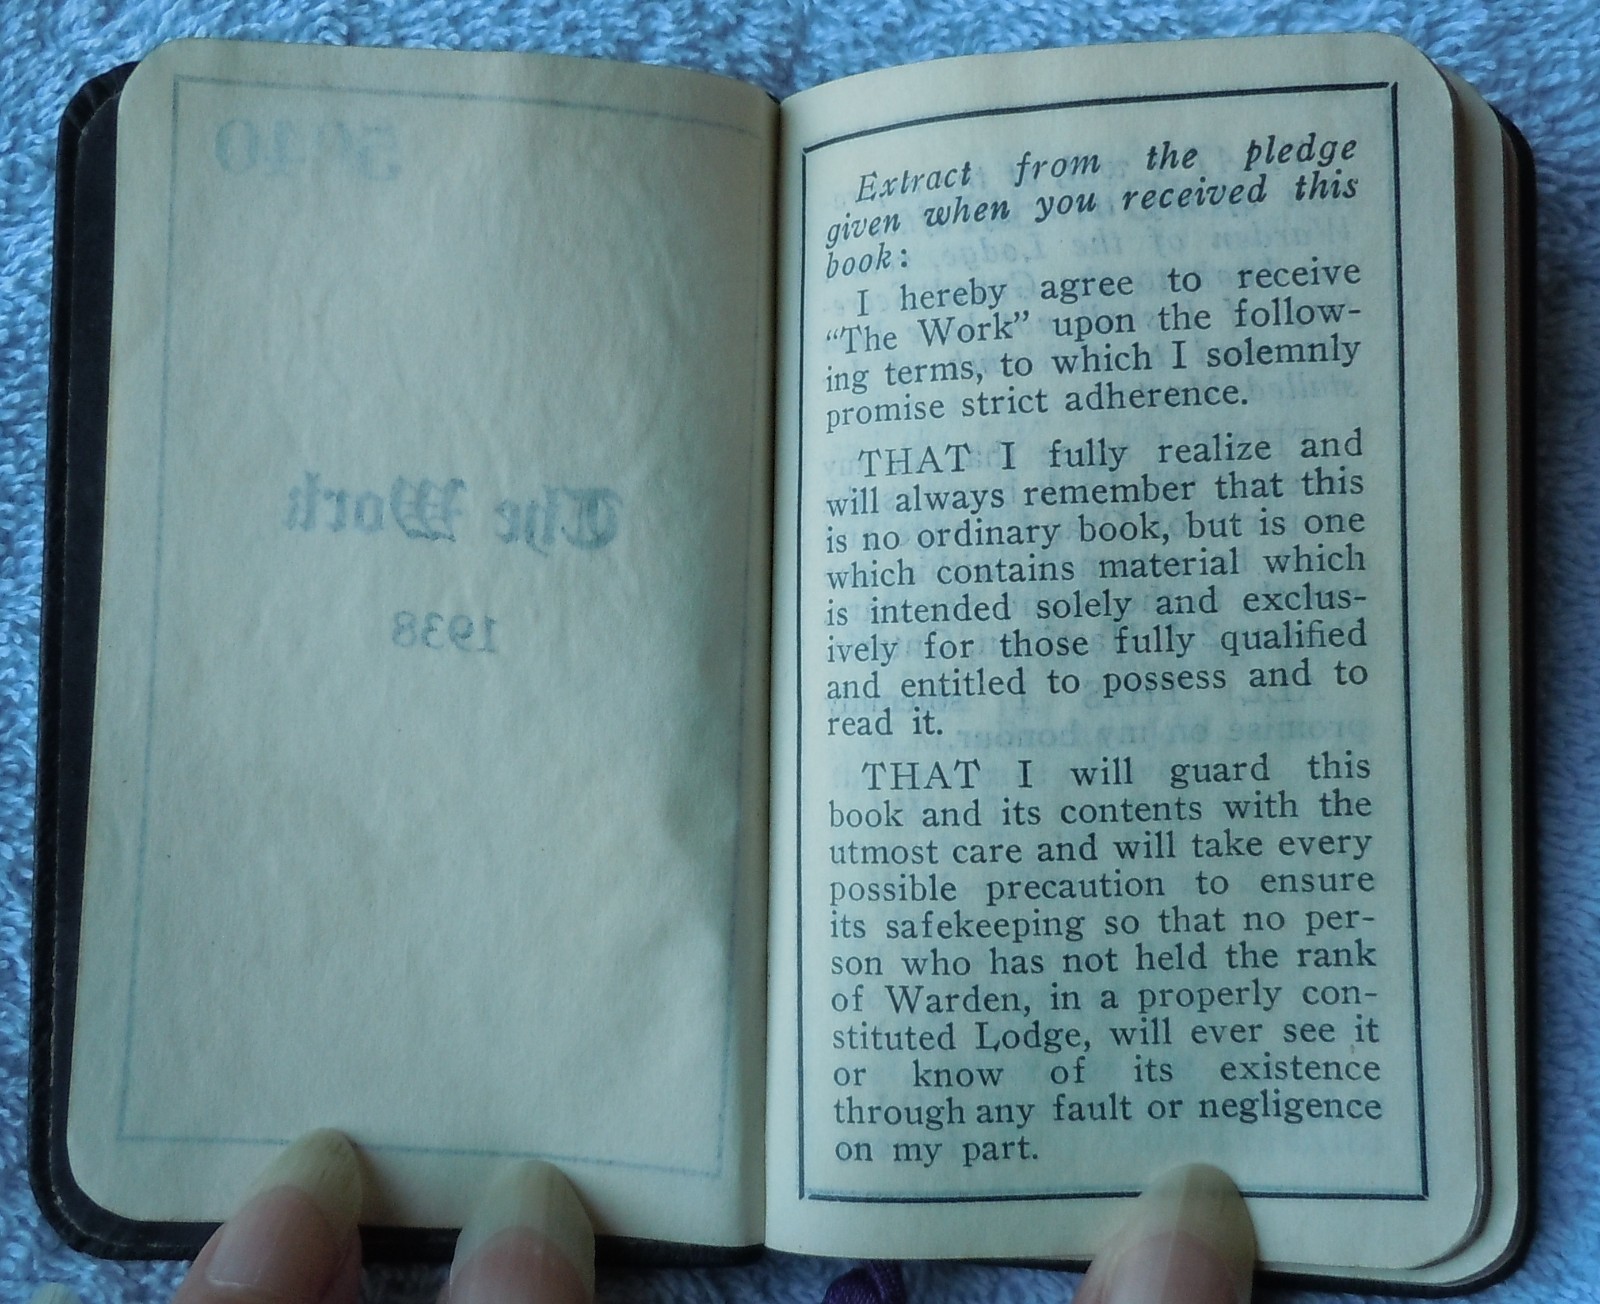 The Work
1938
Extract from the pledge
given when you received this
book:
I hereby agree to receive
“The Work” upon the follow-
ing terms, to which I solemnly
promise strict adherence.
THAT I fully realize and
will always remember that this
is no ordinary book, but is one
which contains material which
is intended solely and exclus-
ively for those fully qualified
and entitled to possess and to
read it.
THAT I will guard this
book and its contents with the
utmost care and will take every
possible precaution to ensure
its safekeeping so that no per-
son who has not held the rank
of Warden, in a properly con-
stituted Lodge, will ever see it
or know of its existence
through any fault or negligence
on my part.